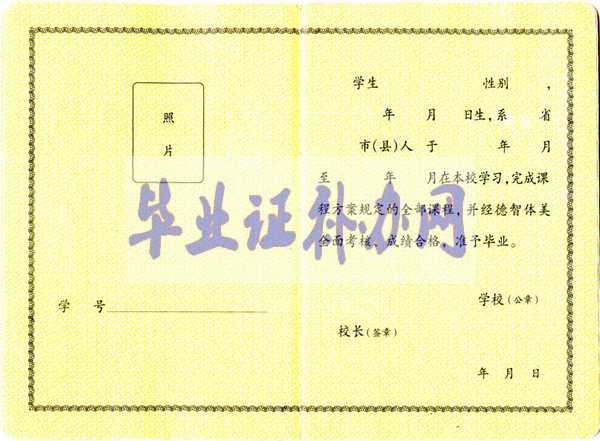 照
片
学号
学生 性别 ,
年 月 日生,系 省
市(县)人 于 年 月
至 年 月在本校学习,完成课
程方案规定的全部课程,并经德智体美
全面考核、成绩合格,准予毕业。
学校(公章)
校长(签章)
年 月 日
毕业证补办网